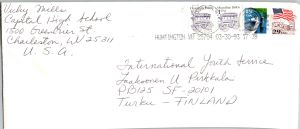 Vicky Mills
Capital High School
1500 Greenbrier St
Charleston, WV 25311
U. S. A.
HUNTINGTON WV 25704 03-30-93
29
International Youth Service
Jaakoonen U Pirkkala
PB125 SF-20101
Turku - FINLAND